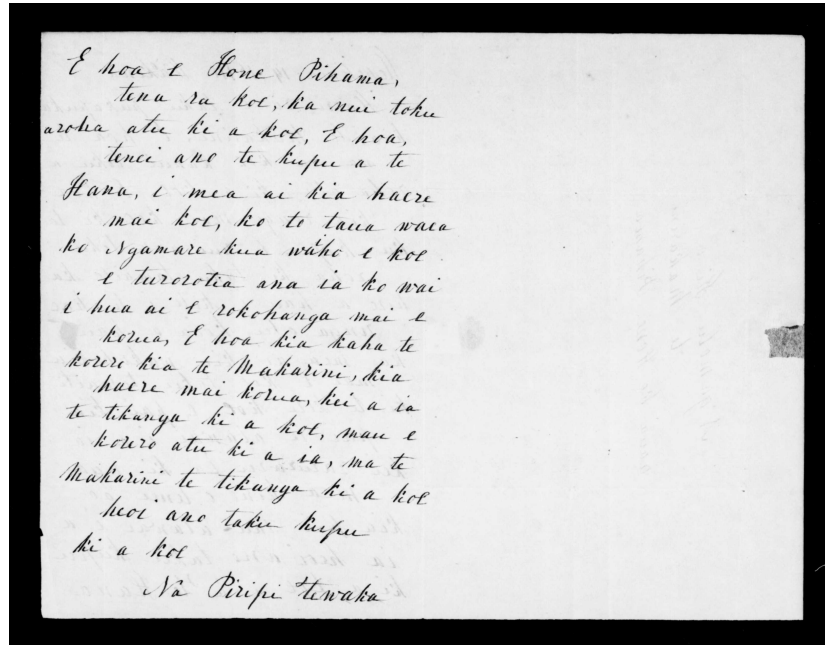 E hoa e Hone Pihama,
tena ra koe, ka nui toku
aroha atu ki a koe, E hoa,
tenei ano te kupu a te
Hana, i mea ai kia haere
mai koe, ko to taua waea
ko Ngamare kua waiho e koe
e turorotia ana ia ko wai
i hua ai e rokohanga mai e
korua, E hoa kia kaha te
korero kia te Makarini, kia
haere mai korua, kei a ia
te tikanga ki a koe, mau e
korero atu ki a ia, ma te
Makarini te tikanga ki a koe
heoi ano taku kupu
ki a koe
Na Piripi tewaka